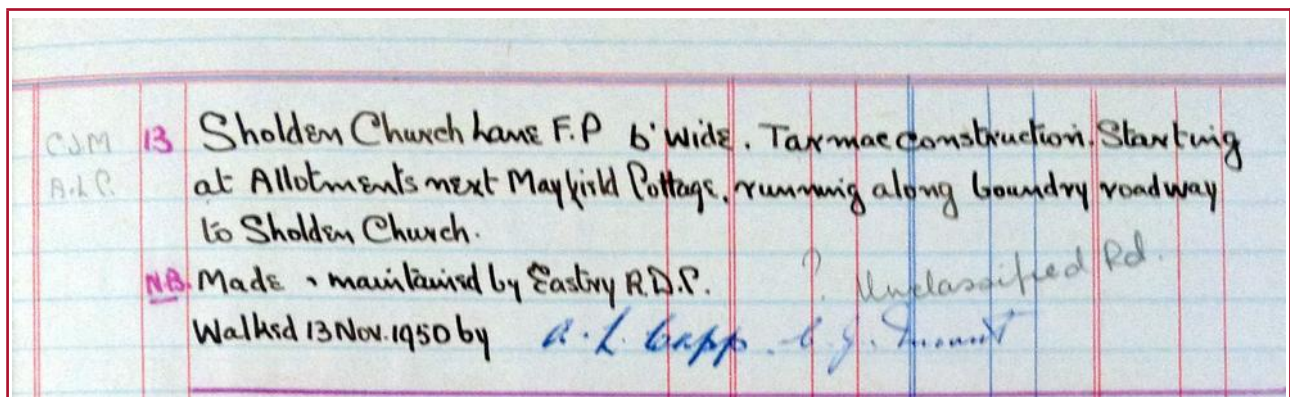 C.J.M 13 Sholden Church Lane F.P 6' Wide. Tarmac Construction. Starting
A.L.C. at Allotments next Mayfield Cottage, running along boundry roadway
to Sholden Church.
N.B. Made & maintained by Eastry R.D.C. ? Unclassified Rd.
Walked 13 Nov. 1950 by A. L. Capp. C. J. Mount